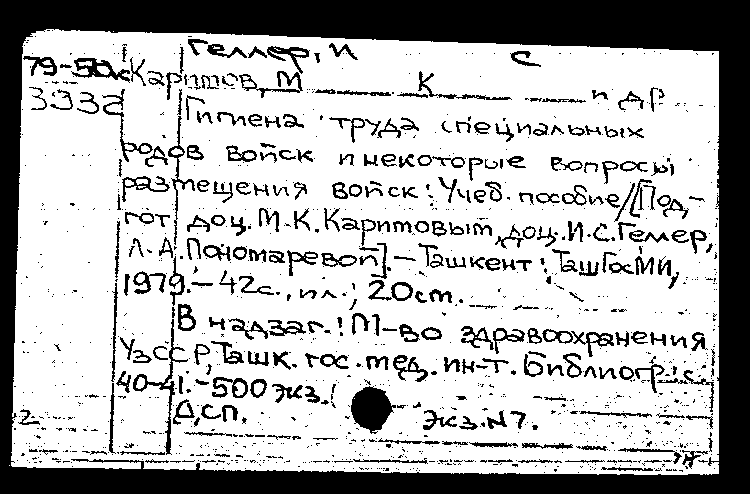 Геллер, И С
79-50к Каримов, М К и др
3332 Гигиена труда специальных
родов войск и некоторые вопросы
размещения войск: Учеб. пособие/[Под-
гот доц. М.К.Каримовым, доц. И.С.Геллер,
Л.А.Пономаревой].— Ташкент: ТашГосМИ,
1979.— 42с., ил.; 20см.
В надзаг.: М-во здравоохранения
УзССР, Ташк. гос. мед. ин-т. Библиогр.: с.
40-41.-500 экз.
ДСП. Экз. N7.
2